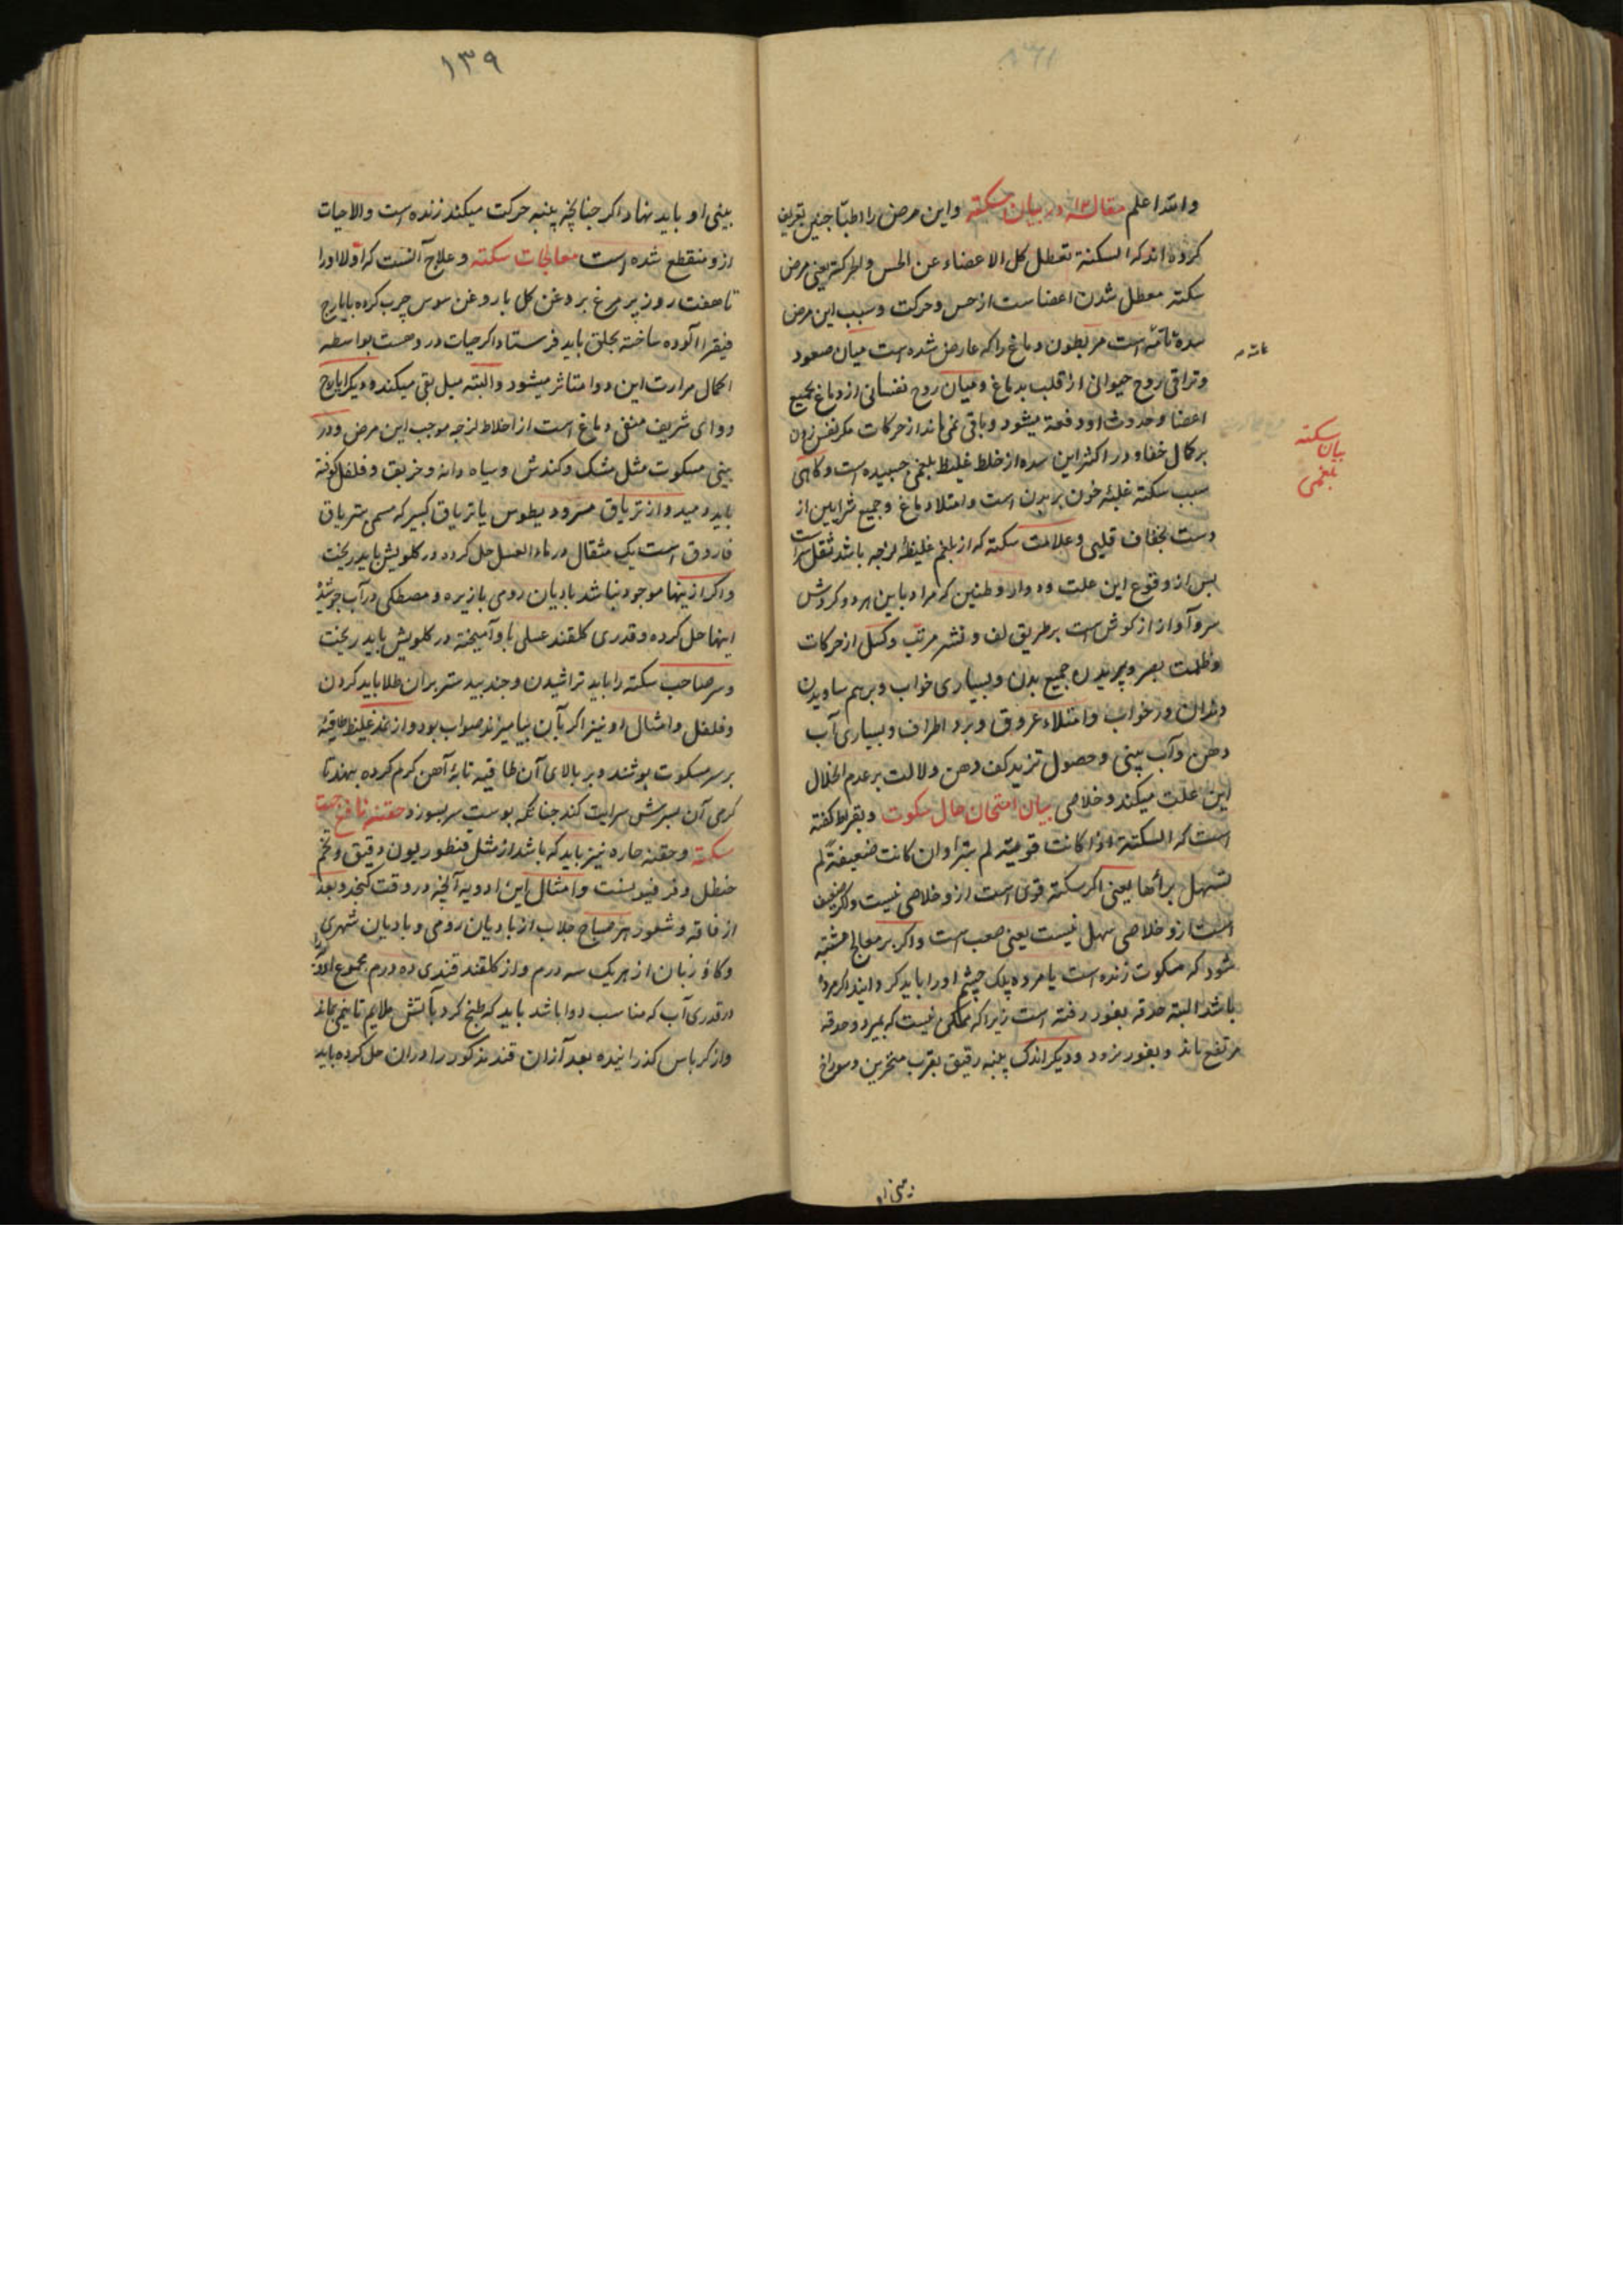 والله اعلم مقاله در بیان سکته و این مرض را اطبا چنین تعریف
کرده اند که السکتة تعطل کل الاعضاء عن الحس و الحرکة یعنی مرض
سکته معطل شدن اعضا ست از حس و حرکت و سبب این مرض
سده تامه است مر بطون دماغ را که عارض شده است میان صعود
و تراقی روح حیوانی از قلب بدماغ و میان روح نفسانی از دماغ بجمیع
اعضا و حدوث او دفعة میشود و باقی نمی ماند از حرکات مکر نفس زدن
بر کمال خفا و در اکثر این سده از خلط غلیظ بلغمی جبیده است و کاهی
سبب سکته غلبه خون بر بدن است و امتلا دماغ و جمیع شرایین از
دست بخفاف قلبی و علامت سکته که از بلغم غلیظه لزجه باشد ثقل سر است
بس از وقوع این علت و دوار و طنین که مراد باین هر دو کردش
سر و آواز از کوش است بر طریق لف و نشر مرتب و کسل از حرکات
و ظلمت بصر و پریدن جمیع بدن و بسیاری خواب و برهم ساویدن
دندان در خواب و امتلاء عروق و برد اطراف و بسیاری آب
دهن و آب بینی و حصول تزید کف دهن دلالت بر عدم انحلال
این علت میکند و خلاصی بیان امتحان حال مسکوت و بقراط کفته
است که السکتة اذا کانت قویة لم تبرأ و ان کانت ضعیفة لم
تسهل برائها یعنی اکر سکته قوی است ازو خلاصی نیست و اکر ضعیف
است ازو خلاصی سهل نیست یعنی صعب است و اکر بر معالج مشتبه
شود که مسکوت زنده است یا مرده پلک چشم او را باید کردانید اکر مرده
باشد البته حدقه بغور رفته است زیرا که ممکن نیست که بمیرد و حدقه
مرتفع ماند و بغور نرود و دیکر اندک پنبه رقیق بقرب منخرین و سوراخ
بیان
سکته
بلغمی
۱۳۹
بینی او باید نهاد اکر جنانچه پنبه حرکت میکند زنده است والا حیات
ازو منقطع شده است معالجات سکته و علاج آنست که اولا او را
تا هفت روز پر مرغ بروغن کل یا روغن سوس چرب کرده بایارج
فیقرا آلوده ساخته بحلق باید فرستاد اکر حیات در و هست بواسطه
کمال مرارت این دوا متاثر میشود و البته میل بقی میکند و دیکر ایارج
دوای شریف منقی دماغ است از اخلاط لزجه موجب این مرض و در
بینی مسکوت مثل مشک و کندش و سیاه دانه و خربق و فلفل کوفته
باید دمید و از تریاق مثرودیطوس یا تریاق کبیر که مسمی بتریاق
فاروق است یک مثقال در ماء العسل حل کرده در کلویش باید ریخت
و اکر ازینها موجود نباشد بادیان رومی با زیره و مصطکی در آب جوشیده
اینها حل کرده و قدری کلقند عسلی با و آمیخته در کلویش باید ریخت
و سر صاحب سکته را باید تراشیدن و جند بیدستر بر ان طلا باید کردن
و فلفل و امثال او نیز اکر بآن بیامیزند صواب بود و از نمد غلیظ طاقیه
بر سر مسکوت بوشند و بر بالای آن طاقیه تابه آهن کرم کرده بنهند تا
کرمی آن بسرش سرایت کند جنانکه بوست سر بسوزد حقنه نافع جهت
سکته و حقنه حاره نیز باید که باشد از مثل قنطوریون دقیق و تخم
حنظل و فرفیون و امثال این ادویه آنچه در وقت کنجد و بعد
از فاقه و شعور هر صباح جلاب از بادیان رومی و بادیان شهری
و کاو زبان از هر یک سه درم و از کلقند قندی ده درم مجموع
در قدری آب که مناسب دوا باشد باید که طبخ کرد بآتش ملایم تا نیمی بماند
و از کرباس کذرانیده بعد از ان قند مذکور را در ان حل کرده باید